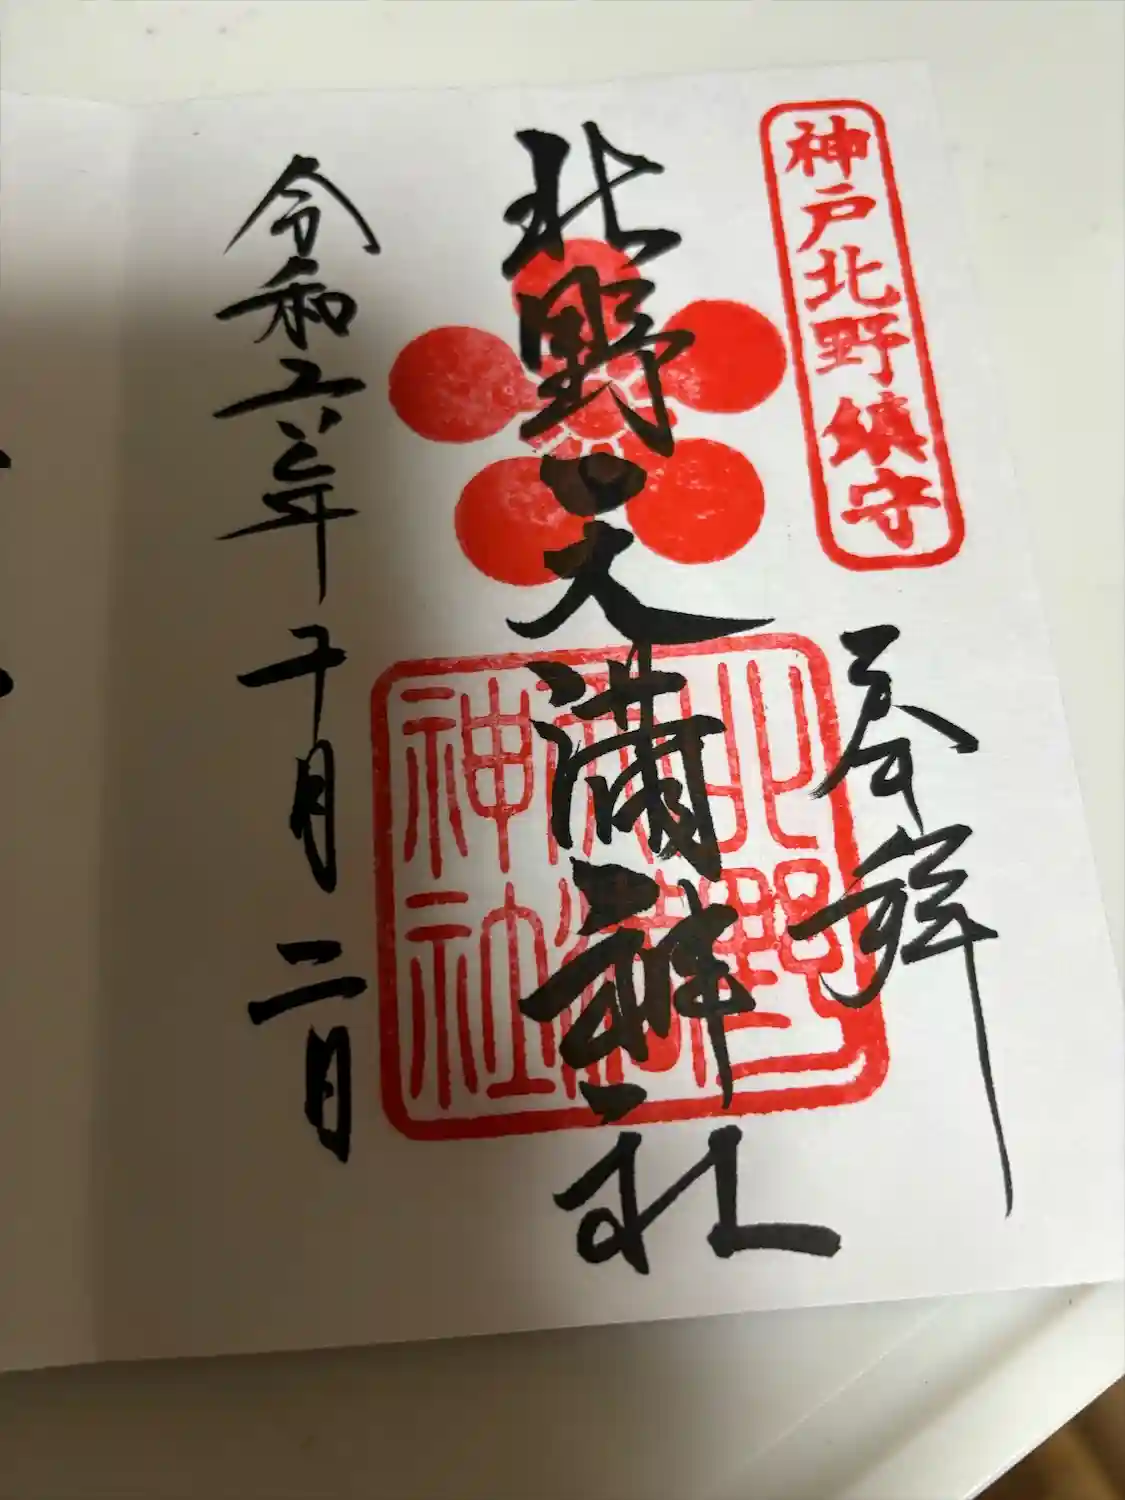 神戸北野鎮守
奉拝
北野天満神社
北野天満神社
令和六年十月二日